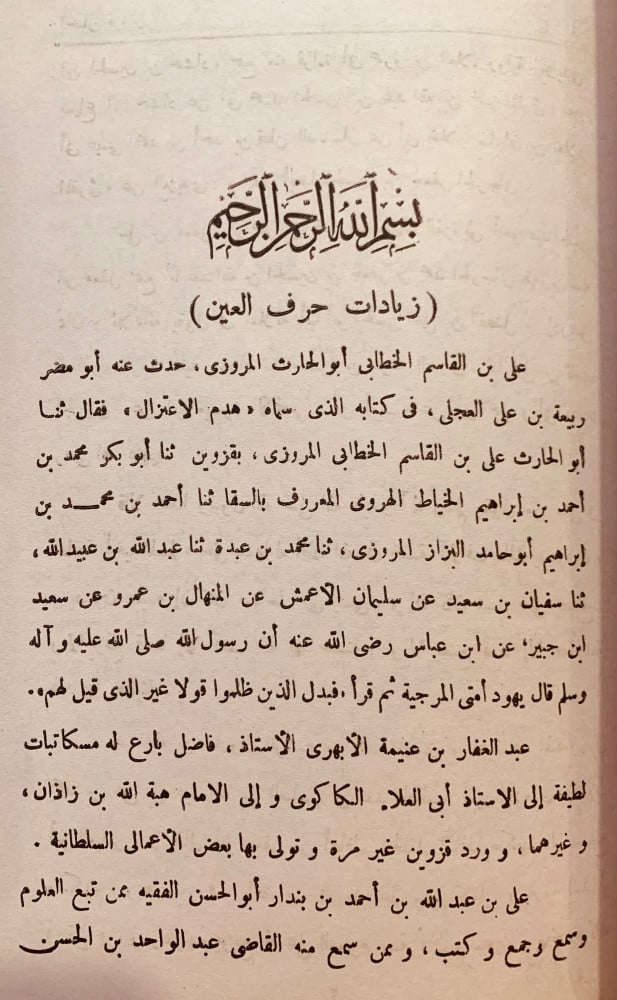 بسم الله الرحمن الرحيم
( زيادات حرف العين )
على بن القاسم الخطابى أبوالحارث المروزى، حدث عنه أبو مضر
ربيعة بن على العجلى، فى كتابه الذى سماه « هدم الاعتزال » فقال ثنا
أبو الحارث على بن القاسم الخطابى المروزى، بقزوين ثنا أبو بكر محمد بن
أحمد بن إبراهيم الخياط الهروى المعروف بالسقا ثنا أحمد بن محمد بن
إبراهيم أبوحامد البزاز المروزى، ثنا محمد بن عبدة ثنا عبد الله بن عبيدالله،
ثنا سفيان بن سعيد عن سليمان الأعمش عن المنهال بن عمرو عن سعيد
ابن جبير، عن ابن عباس رضى الله عنه أن رسول الله صلى الله عليه و آله
وسلم قال يهود أمتى المرجية ثم قرأ «فبدل الذين ظلموا قولا غير الذى قيل لهم».
عبد الغفار بن عنيمة الأبهرى الأستاذ، فاضل بارع له مسكاتبات
لطيفة إلى الاستاذ أبى العلاء الكاكوى و إلى الامام هبة الله بن زاذان،
و غيرهما، و ورد قزوين غير مرة و تولى بها بعض الأعمالى السلطانية .
على بن عبد الله بن أحمد بن بندار أبوالحسن الفقيه ممن تبع العلوم
وسمع وجمع و كتب، و ممن سمع منه القاضى عبد الواحد بن الحسن